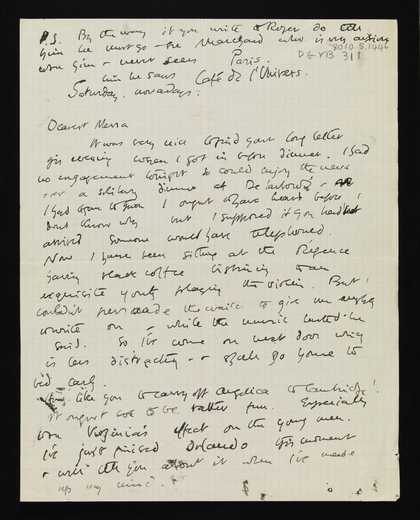 P.S. By the way if you write to Roger do tell
him he must go & see Marchand who is very anxious
8010.5.1446
to see him & never sees Paris.
DE/VB 311
him he says Café de l'Univers.
Saturday. nowadays:
Dearest Nessa
It was very nice to find your long letter
this evening when I got in before dinner. I had
no engagement tonight so could enjoy the news
over a solitary dinner at
I had begun to think I ought to have heard before. I
dont know why but I supposed if you hadnt
arrived someone would have telephoned.
Now I have been sitting at the Régence
having black coffee listening to an
exquisite youth playing the violin. But I
couldn't persuade the waiter to give me anything
to write on & while the music lasted he
said. So I've come on next door which
is less distracting & shall go home to
bed early.
like you to carry off Angelica to Cambridge!
It ought to be rather fun. Especially
Virginia's effect on the young men.
I've just finished Orlando this moment
& will tell you about it when I've made
up my mind.